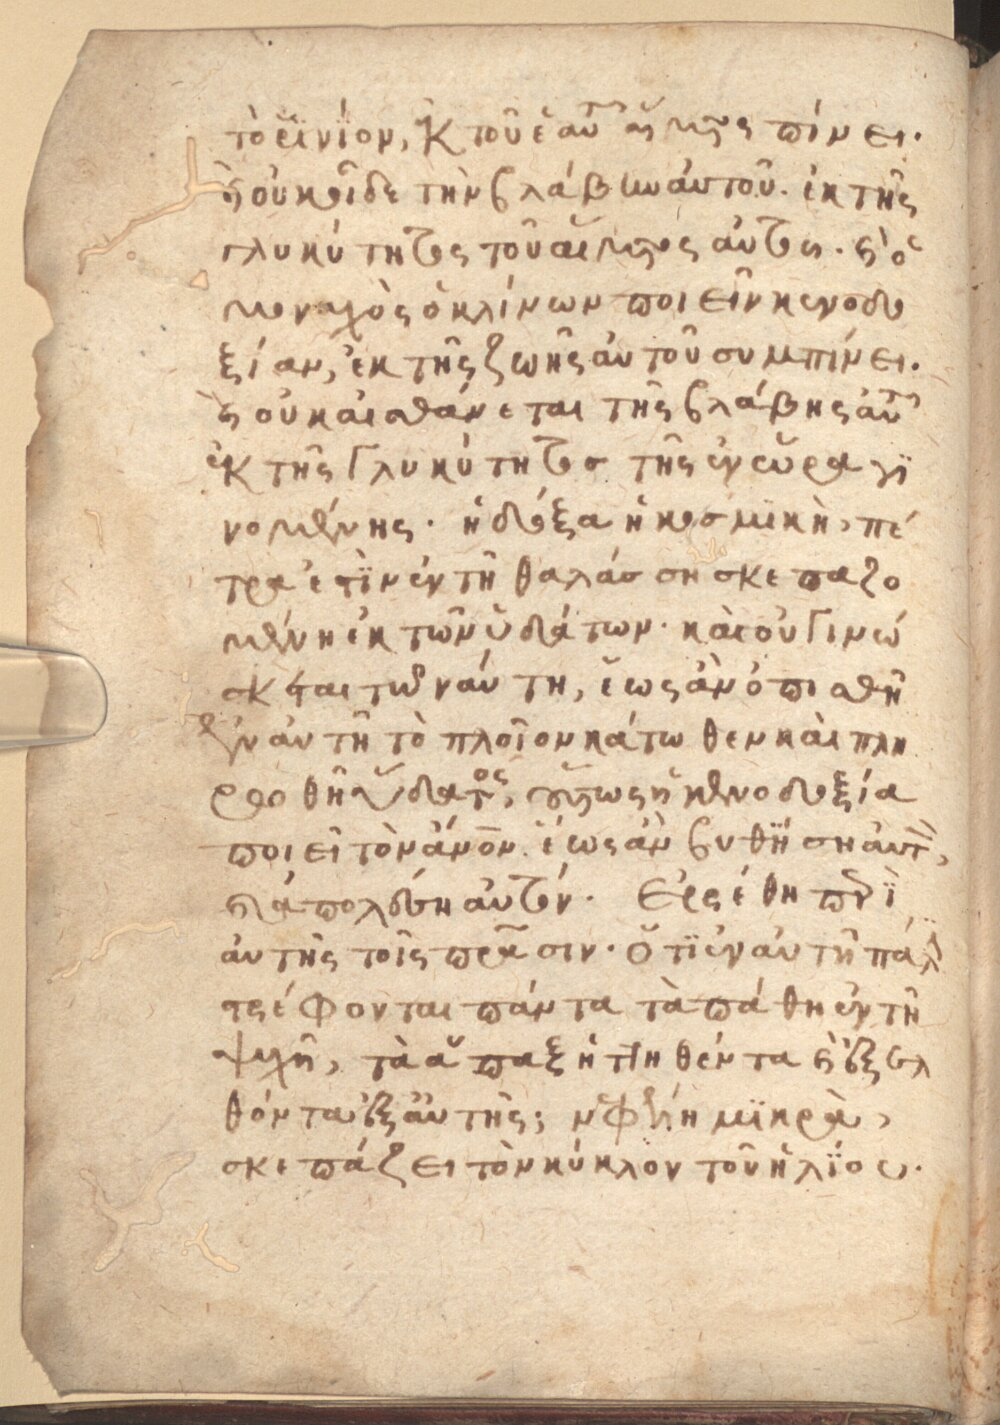 τὸ ῥινίον, ἐκ τοῦ ἑαυτ αἵματος πίνει.
καὶ οὐκ οἶδε τὴν βλάβην αὐτοῦ. ἐκ τῆς
γλυκύτητος τοῦ αἵματος αὐτου. καὶ ὁ
μοναχὸς ὁ κλίνων ποιεῖν κενοδο
ξίαν, ἐκ τῆς ζωῆς αὐτοῦ συμπίνει.
καὶ οὐκ αισθάνεται τῆς βλάβης αὐτ
ἐκ τῆς γλυκύτητοσ τῆς ἐν εὥρα γϊ
νομένης. ἡ δόξα ἡ κοσμϊκὴ, πέ
τρα ἐστϊν ἐν τῆ θαλάσση σκεπαζο
μένη ἐκ τῶν ὑδάτων. καὶ οὐ γινώ
σκεται τῶ ναύτη, ἕως ἂν ὁπισθῆ
ἐν αὐτῆ τὸ πλοῖον κάτωθεν καὶ πλη
ροθῆ ὕδατος, οὕτως ἡ κενοδοξία
ποιεῖ τὸν ἄνον. ἕως ἂν βυθήση αὐτ,
καὶ ἀπολέση αὐτόν. Ἐρρέθη περὶ
αὐτῆς τοῖς πρασιν. ὅτϊ ἐν αὐτῆ πάλϊ
στρέφονται πάντα τὰ πάθη ἐν τῆ
ψυχῆ, τὰ ἅπαξ ἡττηθέντα καὶ ἐξελ
θόντα ἐξ αὐτῆς; νεφέλη μϊκρὰ,
σκεπάζει τὸν κύκλον τοῦ ἡλϊου.